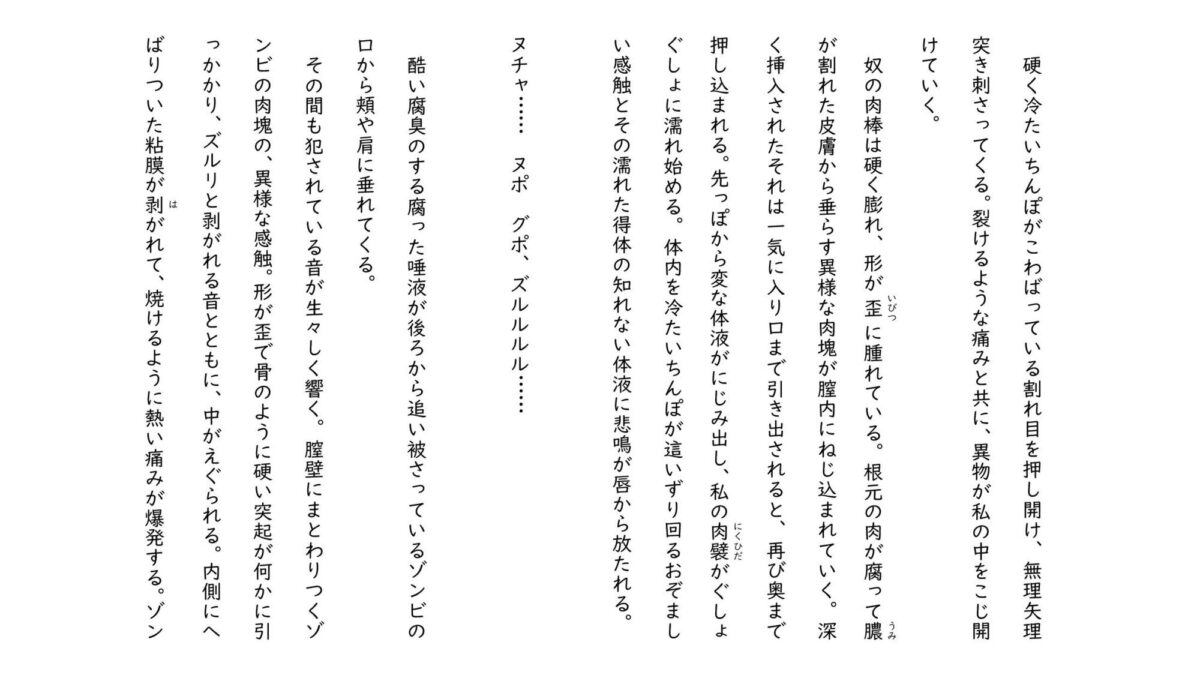 硬く冷たいちんぽがこわばっている割れ目を押し開け、無理矢理
突き刺さってくる。裂けるような痛みと共に、異物が私の中をこじ開
けていく。
奴の肉棒は硬く膨れ、形が歪に腫れている。根元の肉が腐って膿
いびつ
うみ
が割れた皮膚から垂らす異様な肉塊が膣内にねじ込まれていく。深
く挿入されたそれは一気に入り口まで引き出されると、再び奥まで
押し込まれる。先っぽから変な体液がにじみ出し、私の肉襞がぐしょ
にくひだ
ぐしょに濡れ始める。体内を冷たいちんぽが這いずり回るおぞまし
い感触とその濡れた得体の知れない体液に悲鳴が唇から放たれる。
ヌチャ…… ヌポ グポ、ズルルルル……
酷い腐臭のする腐った唾液が後ろから追い被さっているゾンビの
口から頬や肩に垂れてくる。
その間も犯されている音が生々しく響く。膣壁にまとわりつくゾ
ンビの肉塊の、異様な感触。形が歪で骨のように硬い突起が何かに引
っかかり、ズルリと剥がれる音とともに、中がえぐられる。内側にへ
ばりついた粘膜が剥がれて、焼けるように熱い痛みが爆発する。ゾン
は